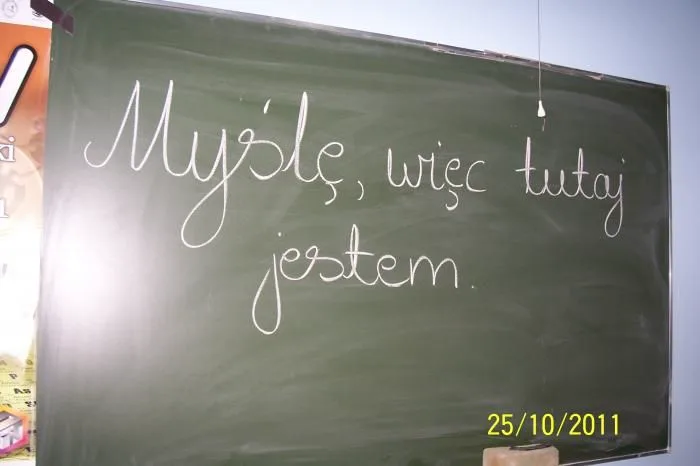 Myślę, więc tutaj
jestem.
25/10/2011